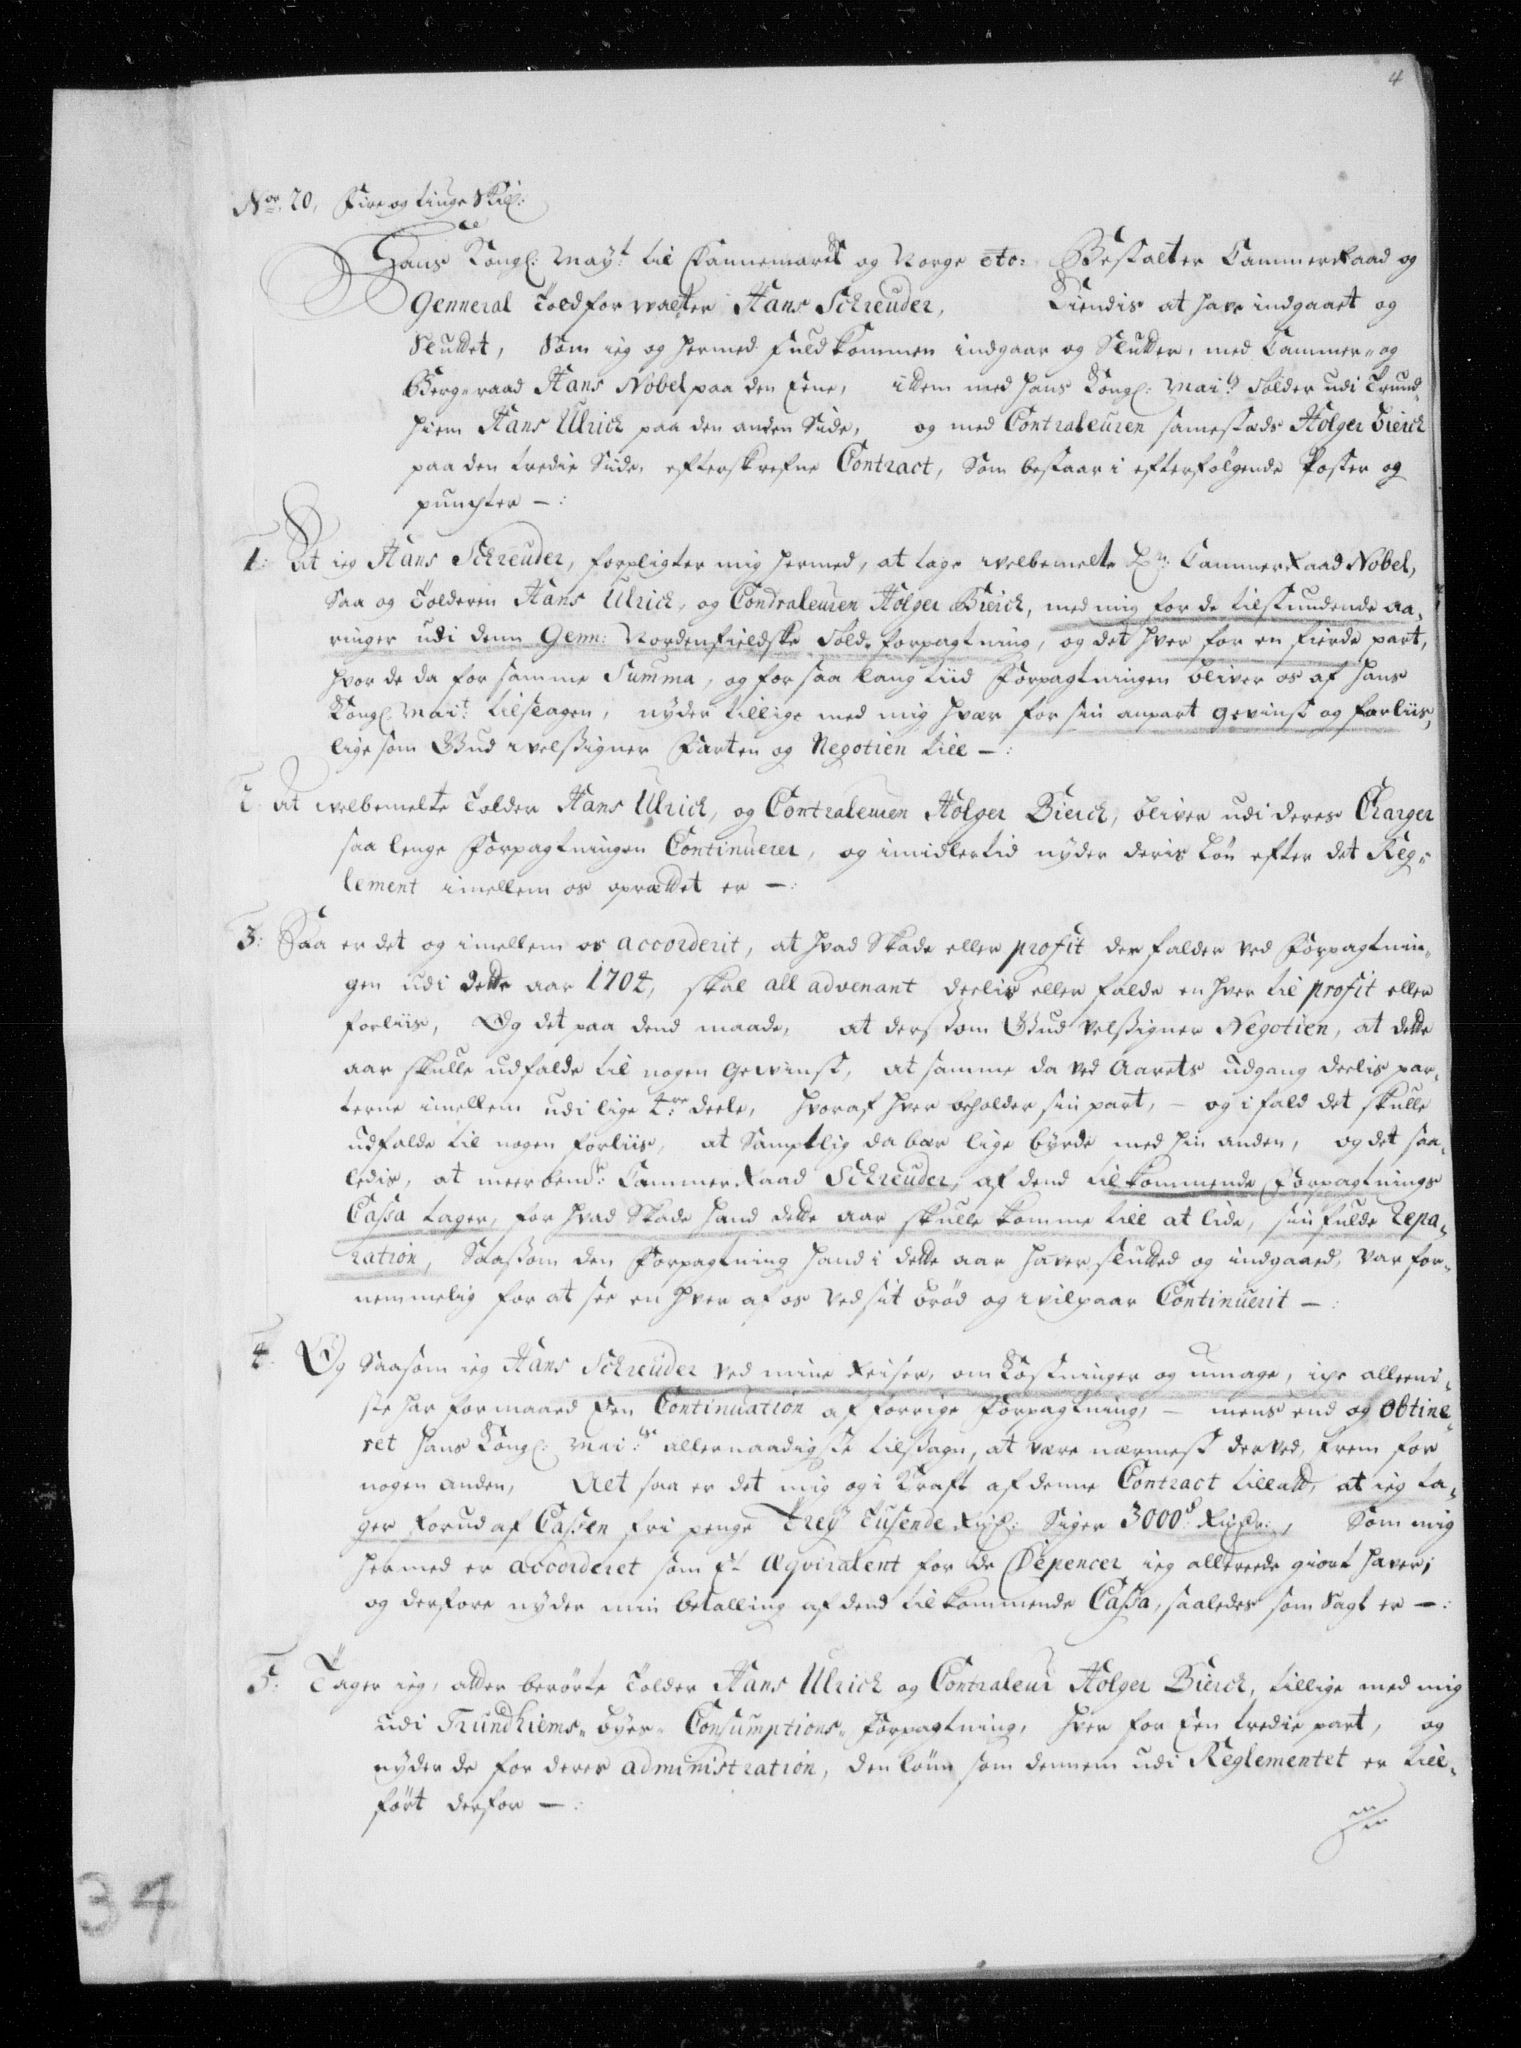 4
No: 20, Fire og tiuge Skil:
Hans Kongl: Mayt: til Dannemarck og Norge etc: Bestalter Cammerraad og
Genneral Toldforvalter Hans Schreuder, Kiendis at have indgaaet og
Sluttet, Som ieg og hermed fuldkommen indgaar og Slutter, med Cammer- og
Berg-raad Hans Nobel paa den Eene, ittem med Hans Kongl: Maits Tolder udi Trund-
hiem Hans Ulrich paa den anden Side, og med Contraleuren samesteds Holger Bierch
paa den tredie Side, efterskrefne Contract, Som bestaar i efterfølgende Poster og
puncter -:
1: At ieg Hans Schreuder, forpligter mig hermed, at tage welbemelte Hr: CammerRaad Nobel,
Saa og Tolderen Hans Ulrich, og Condraleuren Holger Bierch, med mig for de tilstundende aa-
ringer udi denn Genn: Nordenfieldske Told-forpagtning, og det hver for en fierde part,
hvor de da for samme Summa, og for saa lang tiid Forpagtningen bliver os af Hans
Kongl: Mait: tilslagen, nyder tillige med mig hver for sin anpart gevinst og forliis,
lige som Gud welsigner Farten og Negotien till -:
2 At welbemelte Tolder Hans Ulrich, og Contraleuren Holger Bierch, bliver udi deres Charger
saa lenge Forpagtningen Continuerer, og imidlertid nyder deris Løn efter det Reg-
lement imellem os oprættet er -:
3: Saa er det og imellem os accorderit, at hvad Skade eller profit der falder ved Forpagtnin-
gen udi dette aar 1704, skal all advenant deelis eller falde en hver til profit eller
forliis, Og det paa dend maade, at derssom Gud velsigner Negotien, at dette
aar skulle udfalde til nogen Gewinst, at samme da ved Aarets udgang deelis par-
terne imellem udi lige 4re deele, hvoraf hver beholder sin part, - og i fald det skulle
udfalde til nogen forliis, at Samptlig da bær lige byrde med hin anden, og det saa-
ledis, at meerbemte: CammerRaad Schreuder, af dend tilkommende Forpagtnings
Cassa tager, for hvad Skade hand dette aar skulle komme till at lide, siin fulde Repa-
ration, Saassom den Forpagtning hand i dette aar haver sluttet og indgaaed, var for-
nemmelig for at see en hver af os ved sit brød og wilpaar Continuerit -:
4: Og Saasom ieg Hans Schreuder ved mine Reiser, omkostninger og umage, icke alleeni-
ste har formaaed Een Continuation af forrige Forpagtning, - mens end og Obtine-
ret Hans Kongl: Maits allernaadigste tilsagn, at være nærmest derved, frem for
nogen anden, Alt saa er det mig og i Kraft af denne Contract tilladt, at ieg ta-
ger forud af Cassen fri penge Trey Tusende Rixdr: Siger 3000de Rixdr:, Som mig
hermed er accorderet som Et Æqvivalent for de Depencer ieg allereede giort haver,
og derfore nyder min betalling af dend tilkommende Cassa, saaledes som Sagt er -:
5: Tager ieg, atter berørte Tolder Hans Ulrich og Contraleur Holger Bierch, tillige med mig
udi Trundhiems- byes- Consumptions- Forpagtning, hver for Een tredie part, og
nyder de for deres administration, den lønn som dennem udi Reglementet er till-
ført derfor -:
34